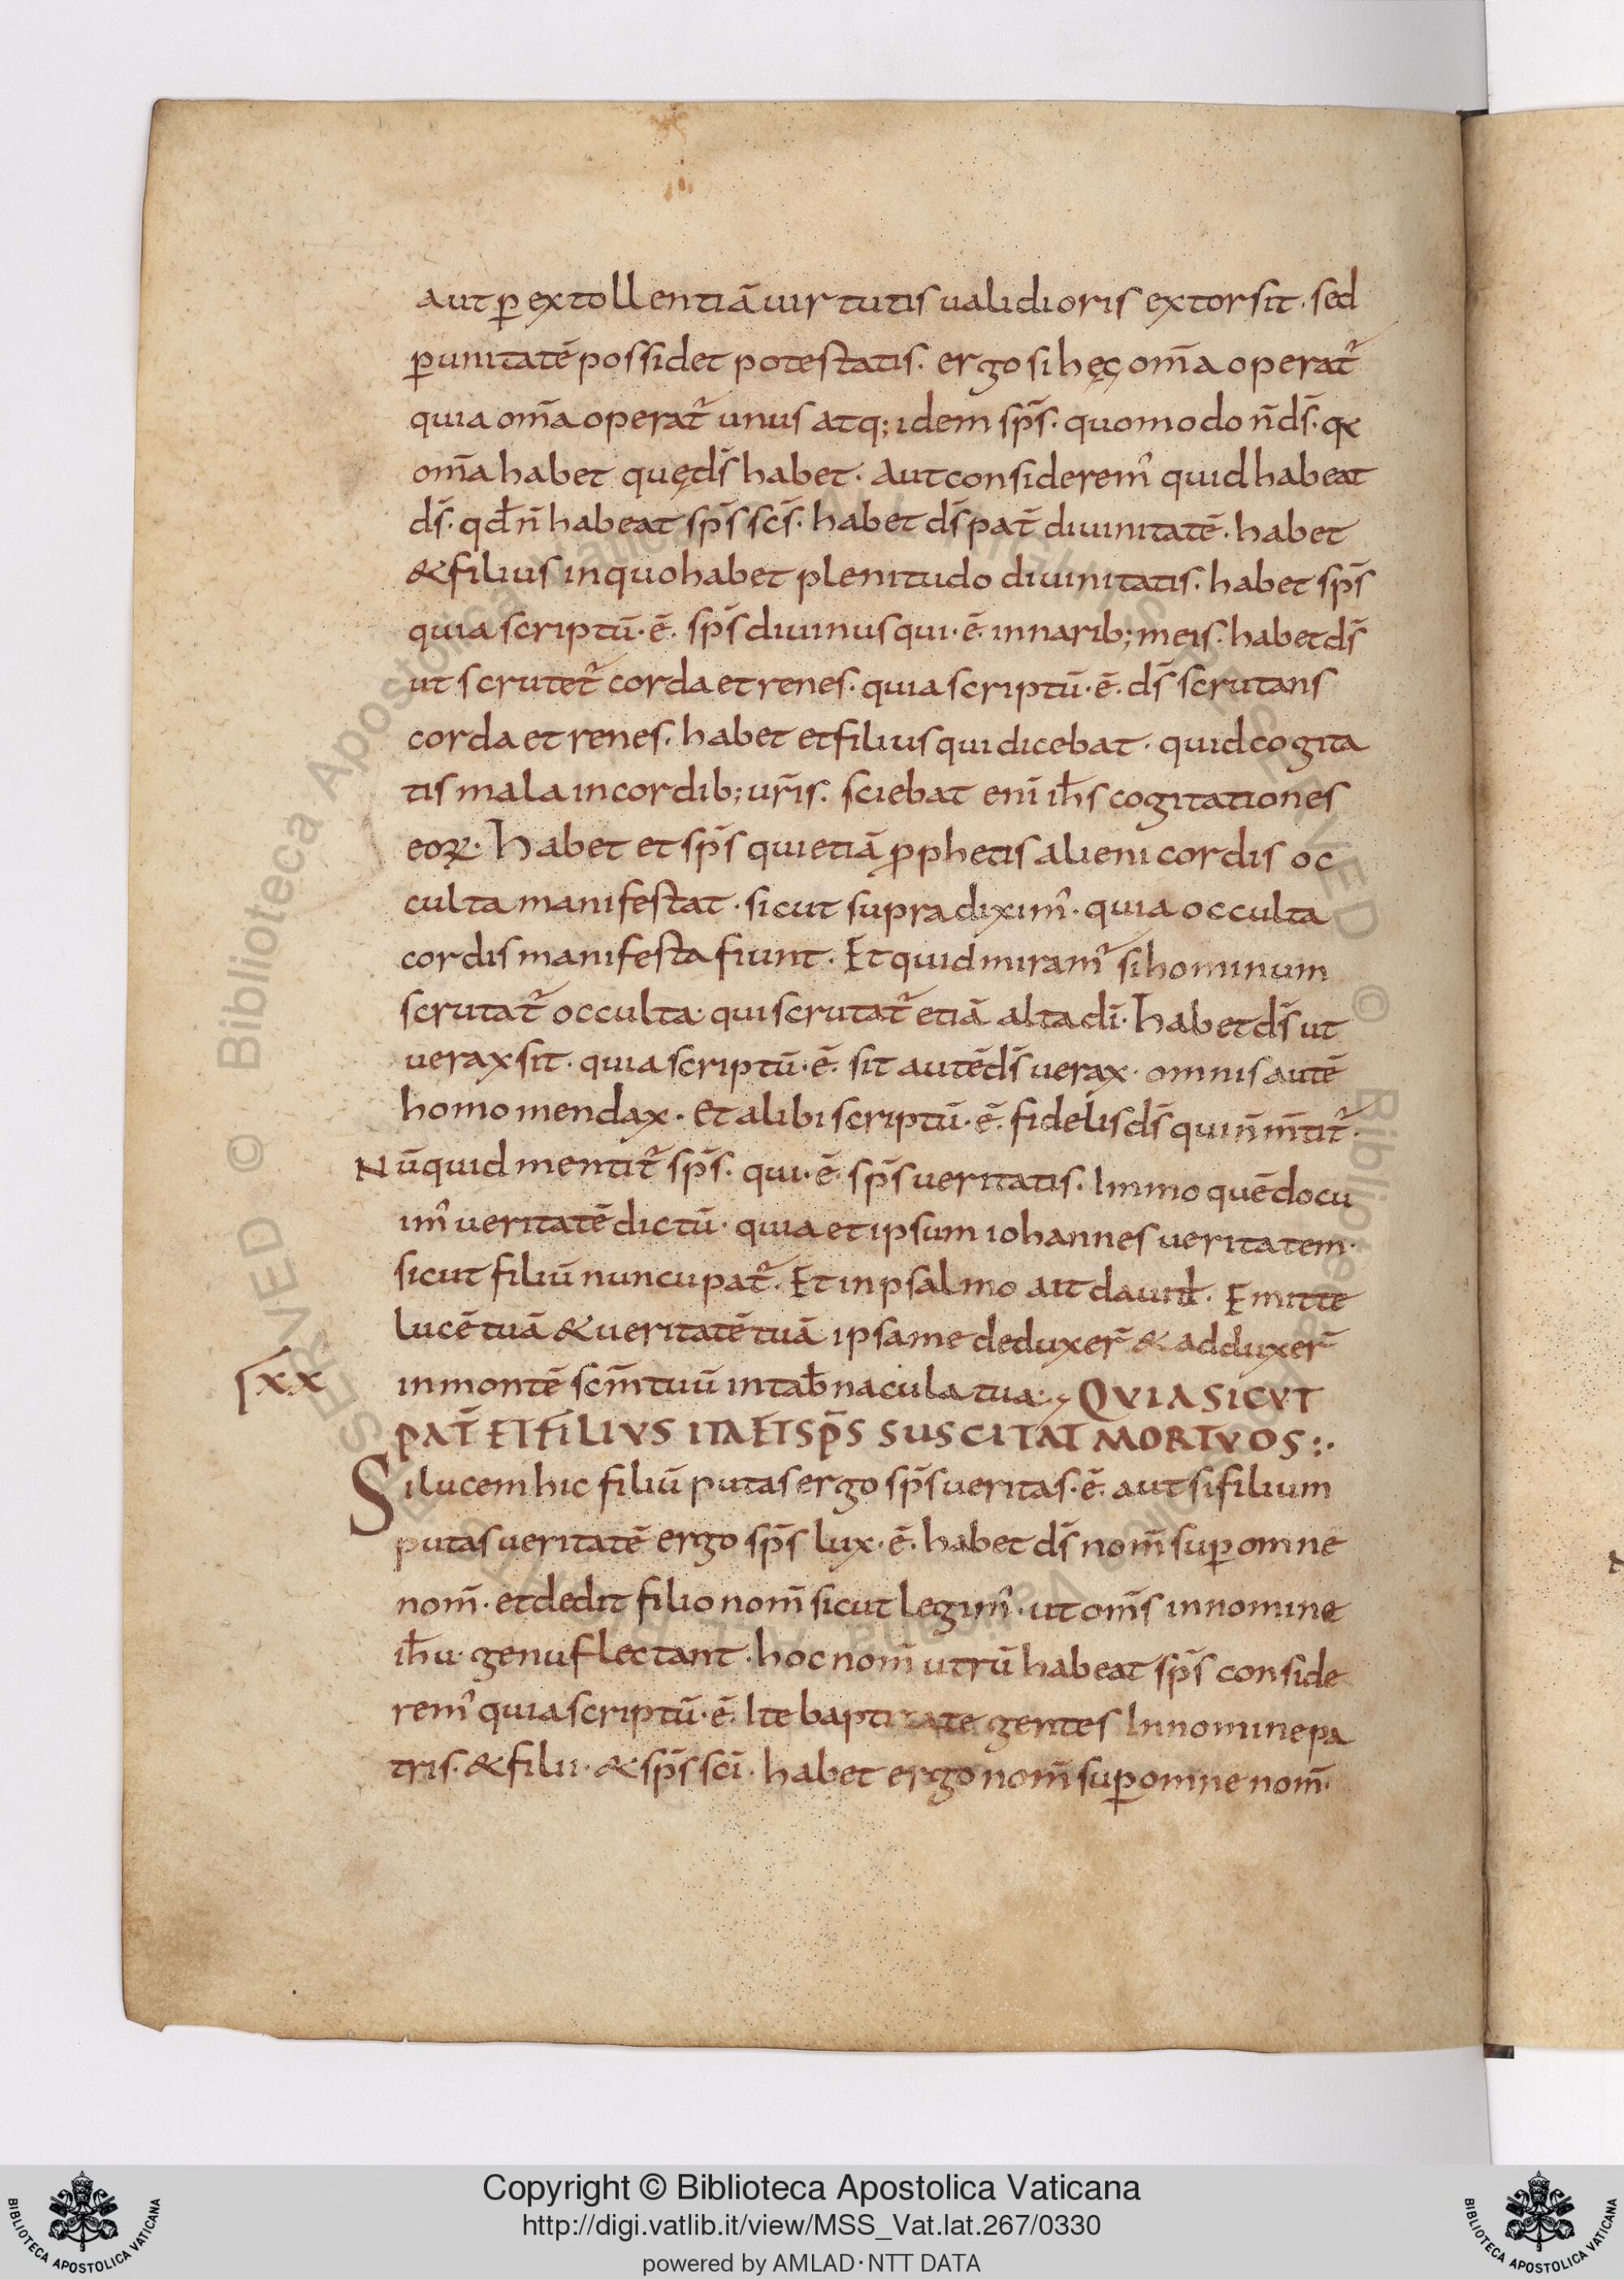 aut ꝑ extollentiā uirtutis ualidioris extorsit· sed
ꝑ unitatē possidet potestatis· ergo si hęc om̄a operat᷒
quia om̄a operat᷒ unus atq; idem sp̄s· quomodo n̄ ds̄· q̄
om̄a habet quę ds̄ habet· Aut consideremꝰ quid habeat
ds̄· qđ n̄ habeat sp̄s sc̄s· habet ds̄ pat̄ diuinitatē· habet
& filius in quo habet plenitudo diuinitatis· habet sp̄s
quia scriptū·ē· sp̄s diuinus qui·ē· in narib; meis· habet ds̄
ut scrutet᷒ corda et renes· quia scriptū·ē· ds̄ scrutans
corda et renes· habet et filius qui dicebat· quid cogita
tis mala in cordib; ur̄is· sciebat enī ih̄s cogitationes
eoꝝ· habet et sp̄s qui etiā ꝓphetis alieni cordis oc
culta manifestat· sicut supra diximꝰ· quia occulta
cordis manifesta fiunt· Et quid miramꝰ si hominum
scrutat᷒ occulta· qui scrutat᷒ etiā alta dī· habet ds̄ ut
uerax sit· quia scriptū·ē· sit autē ds̄ uerax· omnis autē
homo mendax· Et alibi scriptū·ē· fidelis ds̄ qui n̄ m̄tit᷒·
Nūquid mentit᷒ sp̄s· qui·ē· sp̄s ueritatis· Immo quē docu
imꝰ ueritatē dictū· quia et ipsum iohannes ueritatem·
sicut filiū nuncupat᷒· Et in psalmo ait dauid· Emitte
lucē tuā & ueritatē tuā ipsa me deduxer̄ & adduxer̄
in montē sc̄m tuū in tab̄nacula tua·, QUIA SICUT
ſxx
PAT̄ ET FILIUS ITA ET SP̄S SUSCITAT MORTUOS:·
Si lucem hic filiū putas ergo sp̄s ueritas·ē· aut si filium
putas ueritatē ergo sp̄s lux·ē· habet ds̄ nom̄ suꝑ omne
nom̄· et dedit filio nom̄ sicut legimꝰ· ut om̄s in nomine
ih̄u· genu flectant· hoc nom̄ utrū habeat sp̄s conside
remꝰ quia scriptū·ē· Ite baptizate gentes In nomine pa
tris· & filii· & sp̄s sc̄i· habet ergo nom̄ suꝑ omne nom̄·
Copyright © Biblioteca Apostolica Vaticana
http://digi.vatlib.it/view/MSS_Vat.lat.267/0330
powered by AMLAD·NTT DATA
BIBLIOTECA APOSTOLICA VATICANA
BIBLIOTECA APOSTOLICA VATICANA